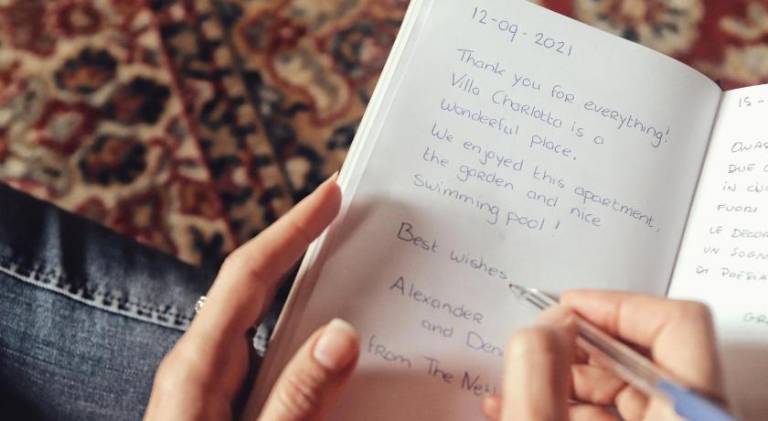 12-09-2021
Thank you for everything!
Villa Charlotta is a
wonderful place.
We enjoyed this apartment,
the garden and nice
swimming pool!
Best wishes,
Alexander
and
from The
15-
DUE
IN
FUORI
LE
UN SOGN
DI POESIA